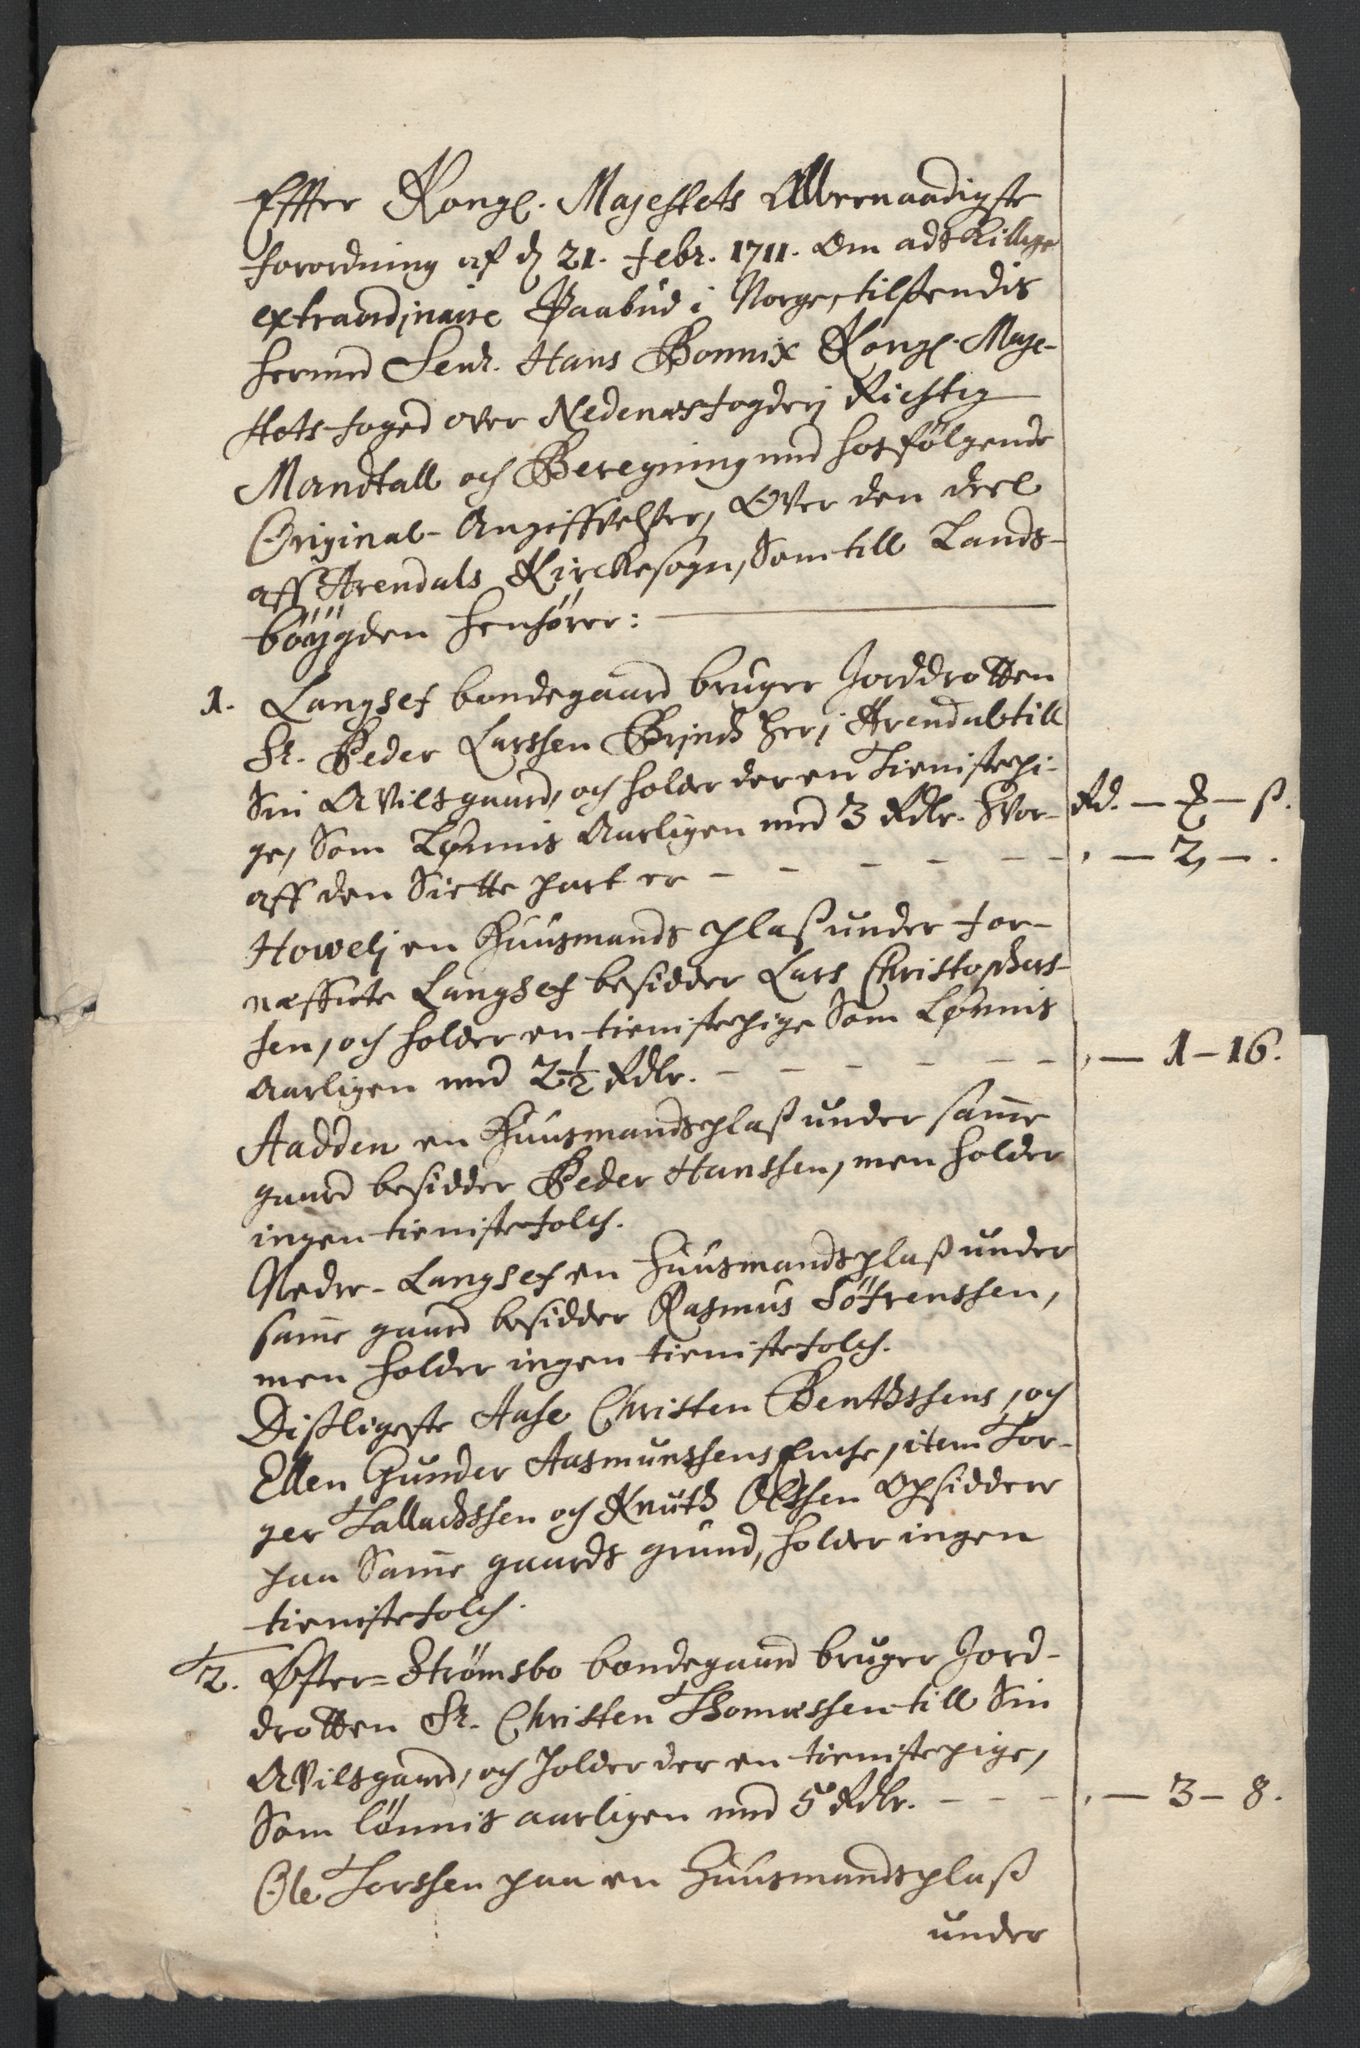 Effter Kongl. Majestets Allernaadigste
forordning af d 21. Febr. 1711. Om adskillige
extraordinaire Paabud i Norge, tilstendis
hermed Senr. Hans Bonnix Kongl. Maje-
stets foged over Nedenæs fogderj Richtig
Mandtall och Beregning med hosfølgende
Original-Angiffvelser, Over den deel
aff Arendals Kirckesogn, Som till Lands-
böÿgden henhörer:
1. Langsef bondegaard bruger Jorddrotten
Sr. Peder Larssen her j Arendal till
Sin Avilsgaard, och holder der en Tienistepi-
ge, Som Lønnis Aarligen med 3 Rdlr. hvor-
aff den Siette part er - - - - - -
Rd. — — ß.
, — 2, — .
Howelj en Huusmands plaß under for-
næffnte Langsef besidder Lars Christophers-
sen, och holder en tienistepige Som Lønnis
Aarligen med 2½ Rdlr. - - - - - , — 1 – 16.
Aadden en Huusmandsplaß under samme
gaard besidder Peder Hanssen, men holder
ingen tienistefolch.
Nedre-Langsef en Huusmandsplaß under
samme gaard besidder Rasmus Söfrenssen,
men holder ingen tienistefolch.
Disligeste Aase Christen Bentssens, och
Ellen Gunder Aasmunssens Encke, item Tor-
ger Tallachssen och Knuth Olssen Opsiddere
paa Samme gaards grund, holder ingen
tienistefolch.
2. Øster=Strømsbo bondegaard bruger Jord-
drotten Sr. Christen Thomæssen till Sin
Avilsgaard, och holder der en tienistepige,
Som lönnis aarligen med 5 Rdlr. - - - , — 3 – 8.
Ole Torssen paa en Huusmandsplaß
under